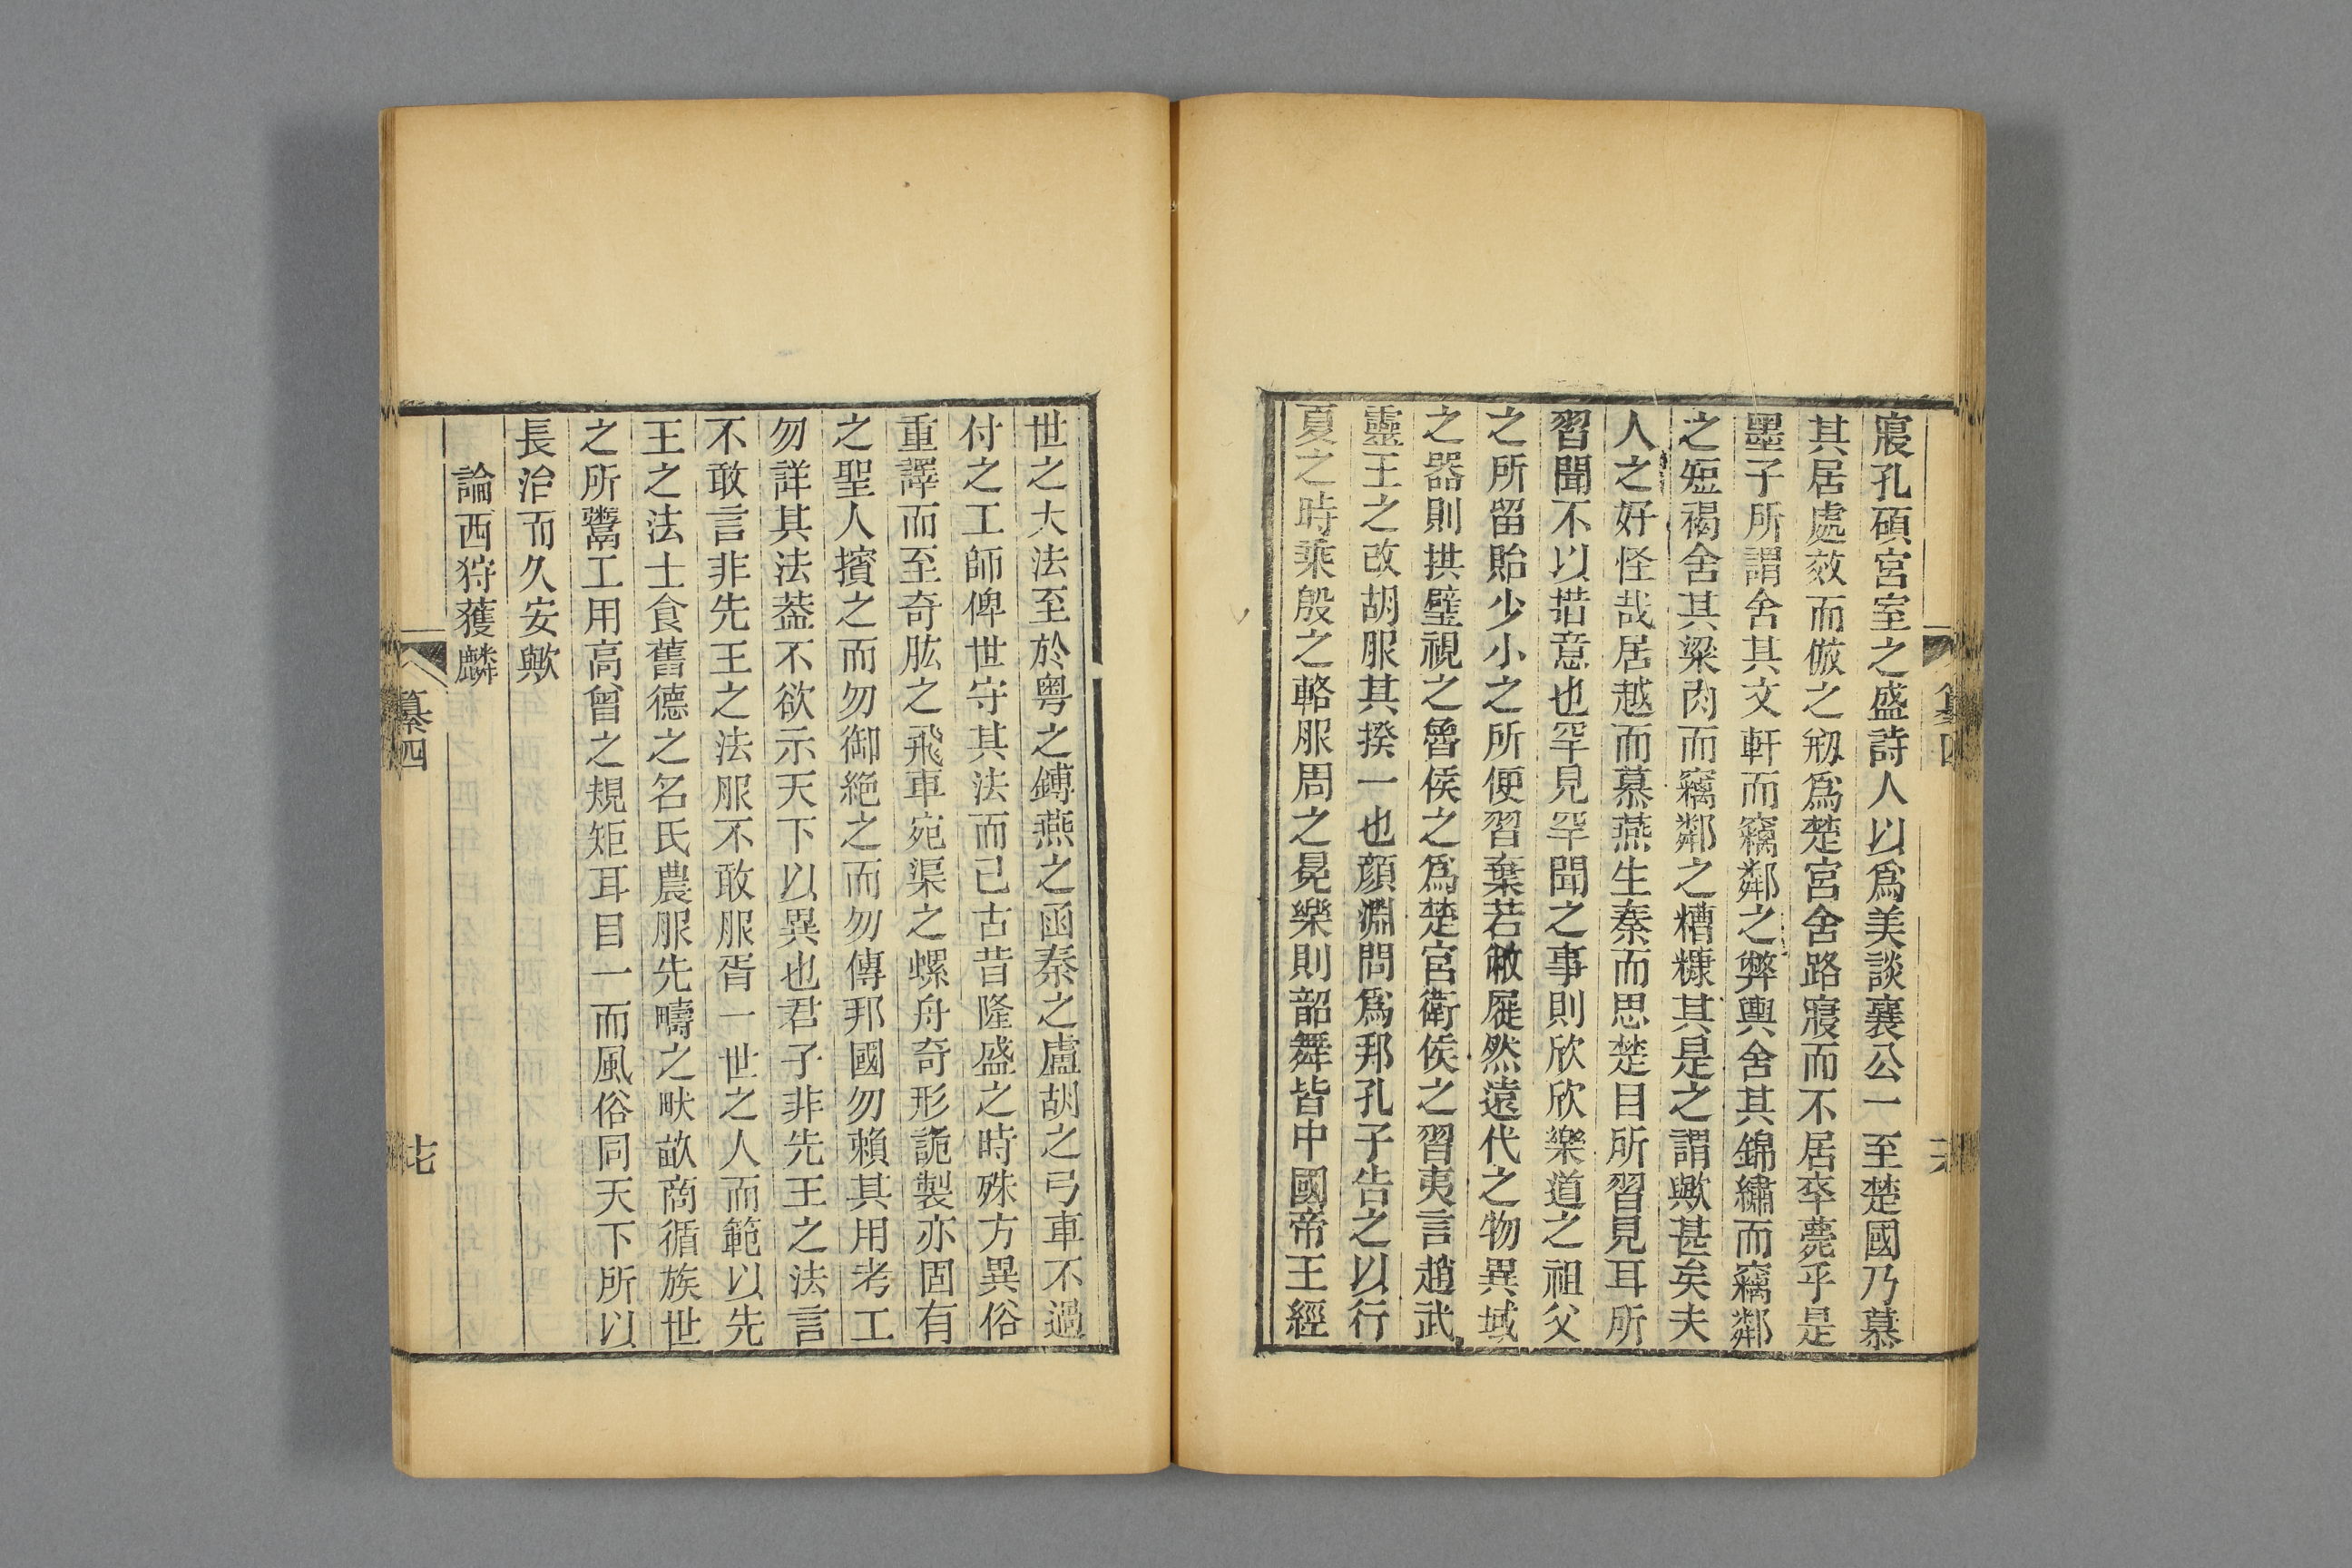 寢孔碩宮室之盛詩人以爲美談襄公一至楚國乃慕
其居處效而倣之剏爲楚宮舍路寢而不居卒薨乎是
墨子所謂舍其文軒而竊鄰之弊輿舍其錦繡而竊鄰
之短褐舍其粱肉而竊鄰之糟糠其是之謂歟甚矣夫
人之好怪哉居越而慕燕生秦而思楚目所習見耳所
習聞不以措意也罕見罕聞之事則欣欣樂道之祖父
之所留貽少小之所便習棄若敝屣然遠代之物異域
之器則拱璧視之魯侯之爲楚宮衛侯之習夷言趙武
靈王之改胡服其揆一也顏淵問爲邦孔子告之以行
夏之時乘殷之輅服周之冕樂則韶舞皆中國帝王經
世之大法至於粵之鎛燕之函秦之廬胡之弓車不過
付之工師俾世守其法而已古昔隆盛之時殊方異俗
重譯而至奇肱之飛車宛渠之螺舟奇形詭製亦固有
之聖人擯之而勿御絕之而勿傳邦國勿賴其用考工
勿詳其法葢不欲示天下以異也君子非先王之法言
不敢言非先王之法服不敢服胥一世之人而範以先
王之法士食舊德之名氏農服先疇之畎畝商循族世
之所鬻工用高曾之規矩耳目一而風俗同天下所以
長治而久安歟
論西狩獲麟
纂四
七